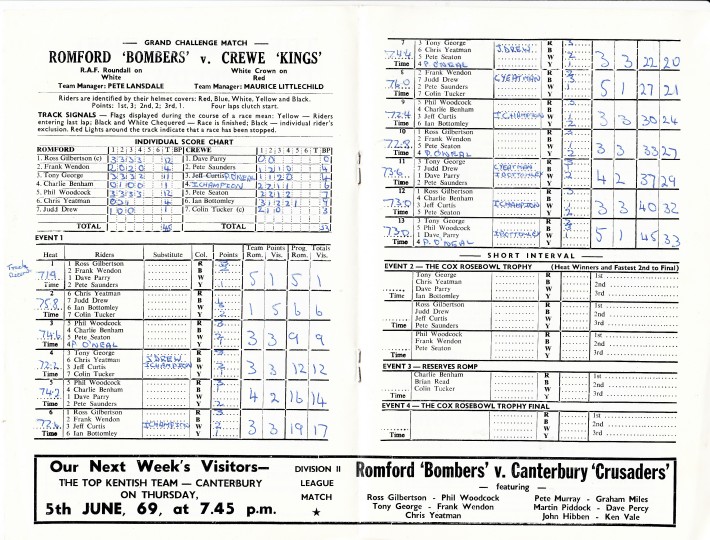 GRAND CHALLENGE MATCH
ROMFORD 'BOMBERS' v. CREWE 'KINGS'
R.A.F. Roundall on White
White Crown on Red
Team Manager: PETE LANSDALE
Team Manager: MAURICE LITTLECHILD
Riders are identified by their helmet covers: Red, Blue, White, Yellow and Black.
Points: 1st, 3; 2nd, 2; 3rd, 1. Four laps clutch start.
TRACK SIGNALS — Flags displayed during the course of a race mean: Yellow — Riders
entering last lap; Black and White Chequered — Race is finished; Black — individual rider's
exclusion. Red Lights around the track indicate that a race has been stopped.
INDIVIDUAL SCORE CHART
ROMFORD 1 2 3 4 5 T BP CREWE 1 2 3 4 5 T BP
1. Ross Gilbertson (c) 3 3 3 3 12 1. Dave Parry 0 0 0
2. Frank Wendon 2. Pete Saunders
3. Tony George 3. Jeff Curtis
4. Charlie Benham 4. I CHAMPION
5. Phil Woodcock 5. Pete Seaton
6. Chris Yeatman 6. Ian Bottomley
7. Judd Drew 7. Colin Tucker (c)
TOTAL 45 TOTAL 33
EVENT 1
Heat Riders Substitute Col. Points Team Points Rom. Vis. Prog. Totals Rom. Vis.
1 1 Ross Gilbertson R 3
2 Frank Wendon B 2
71.9 1 Dave Parry W 5 1 5 1
Time 2 Pete Saunders Y
2 6 Chris Yeatman R
7 Judd Drew B
75.8 6 Ian Bottomley W 1 5 6 6
Time 7 Colin Tucker Y
3 5 Phil Woodcock R 3
4 Charlie Benham B
74.6 5 Pete Seaton W 3 3 9 9
Time 4 P O'NEAL Y
4 3 Tony George R 3
6 Chris Yeatman J. DREW B
72.2 3 Jeff Curtis I CHAMPION W 3 3 12 12
Time 7 Colin Tucker Y
5 5 Phil Woodcock R 3
4 Charlie Benham B
1 Dave Parry W 4 2 16 14
Time 2 Pete Saunders Y 2
6 1 Ross Gilbertson R 3
2 Frank Wendon B
3 Jeff Curtis I CHAMPION W 3 3 19 17
Time 6 Ian Bottomley Y
7 3 Tony George R 3
6 Chris Yeatman J. DREW B
74.4 5 Pete Seaton W 3 3 22 20
Time 4 P. O'NEAL Y
8 2 Frank Wendon R
7 Judd Drew C YEATMAN B
76.0 2 Pete Saunders W 5 1 27 21
Time 7 Colin Tucker Y
9 5 Phil Woodcock R 3
4 Charlie Benham B
72.4 3 Jeff Curtis I CHAMPION W 3 3 30 24
Time 6 Ian Bottomley Y
10 1 Ross Gilbertson R 3
2 Frank Wendon B
72.8 5 Pete Seaton W 3 3 33 27
Time 4 P. O'NEAL Y
11 3 Tony George R
7 Judd Drew C YEATMAN B
73.6 1 Dave Parry I BOTTOMLEY W 4 2 37 29
Time 2 Pete Saunders Y
12 1 Ross Gilbertson R
4 Charlie Benham B
73.0 3 Jeff Curtis I CHAMPION W 3 3 40 32
Time 5 Pete Seaton Y
13 3 Tony George R
5 Phil Woodcock B
73.0 1 Dave Parry I BOTTOMLEY W 5 1 45 33
Time 4 P. O'NEAL Y
SHORT INTERVAL
EVENT 2 — THE COX ROSEBOWL TROPHY (Heat Winners and Fastest 2nd to Final)
Tony George R 1st
Chris Yeatman B 2nd
Dave Parry W
Time Ian Bottomley Y 3rd
Ross Gilbertson R 1st
Judd Drew B 2nd
Jeff Curtis W
Time Pete Saunders Y 3rd
Phil Woodcock R 1st
Frank Wendon B 2nd
Pete Seaton W
Time Y 3rd
EVENT 3 — RESERVES ROMP
Charlie Benham R 1st
Brian Read B 2nd
Colin Tucker W
Time Y 3rd
EVENT 4 — THE COX ROSEBOWL TROPHY FINAL
R 1st
B 2nd
W
Time Y 3rd
Our Next Week's Visitors—
THE TOP KENTISH TEAM — CANTERBURY
ON THURSDAY,
5th JUNE, 69, at 7.45 p.m.
DIVISION II
LEAGUE
MATCH
Romford 'Bombers' v. Canterbury 'Crusaders'
— featuring —
Ross Gilbertson - Phil Woodcock
Tony George - Frank Wendon
Chris Yeatman
Pete Murray - Graham Miles
Martin Piddock - Dave Percy
John Hibben - Ken Vale